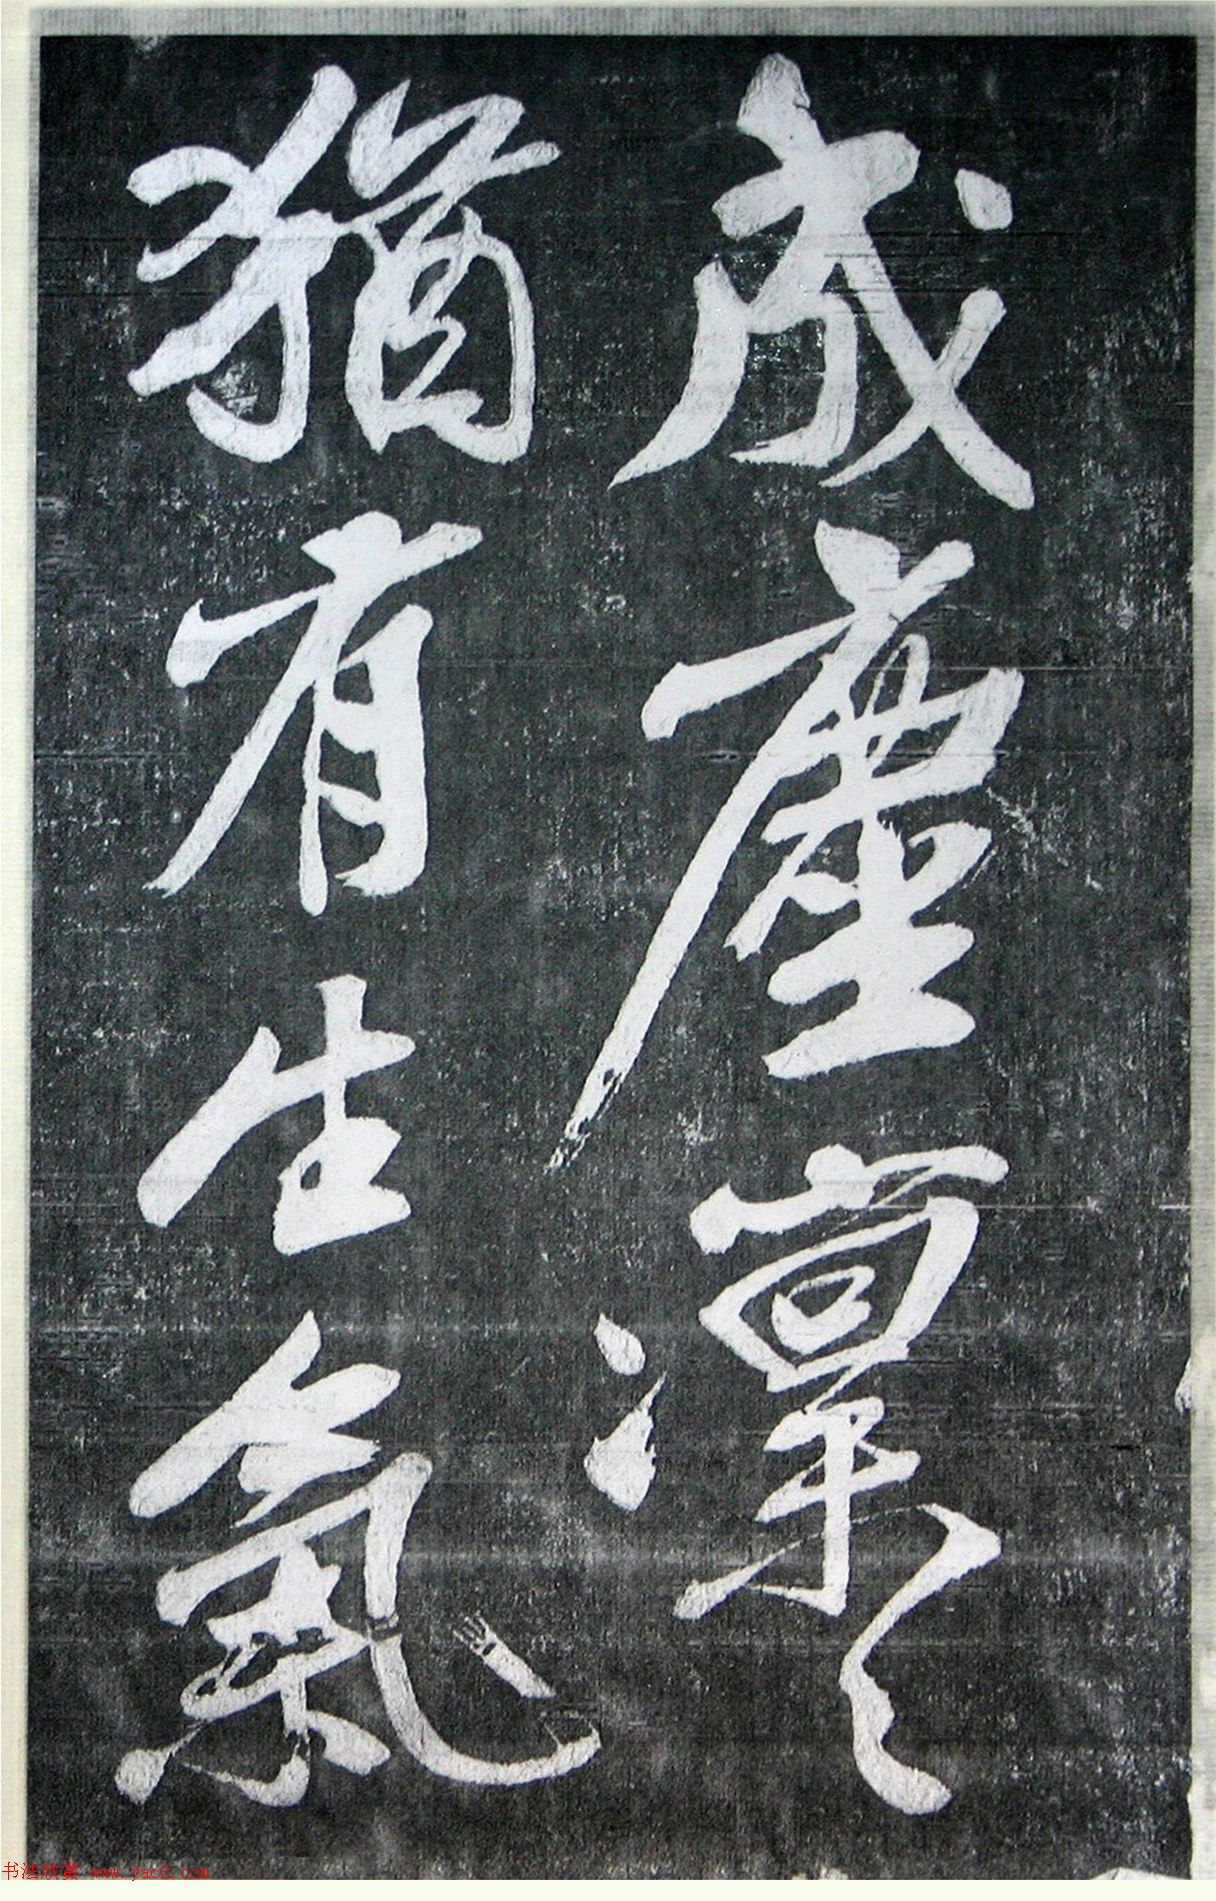 成塵凜〻
猶有生氣
书法欣赏 www.yac8.com